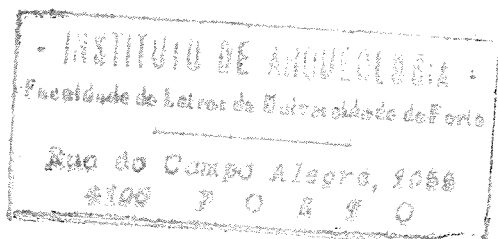 - INSTITUTO DE ARQUEOLOGIA -
Faculdade de Letras da Universidade do Porto
Rua do Campo Alegre, 1055
4100 PORTO